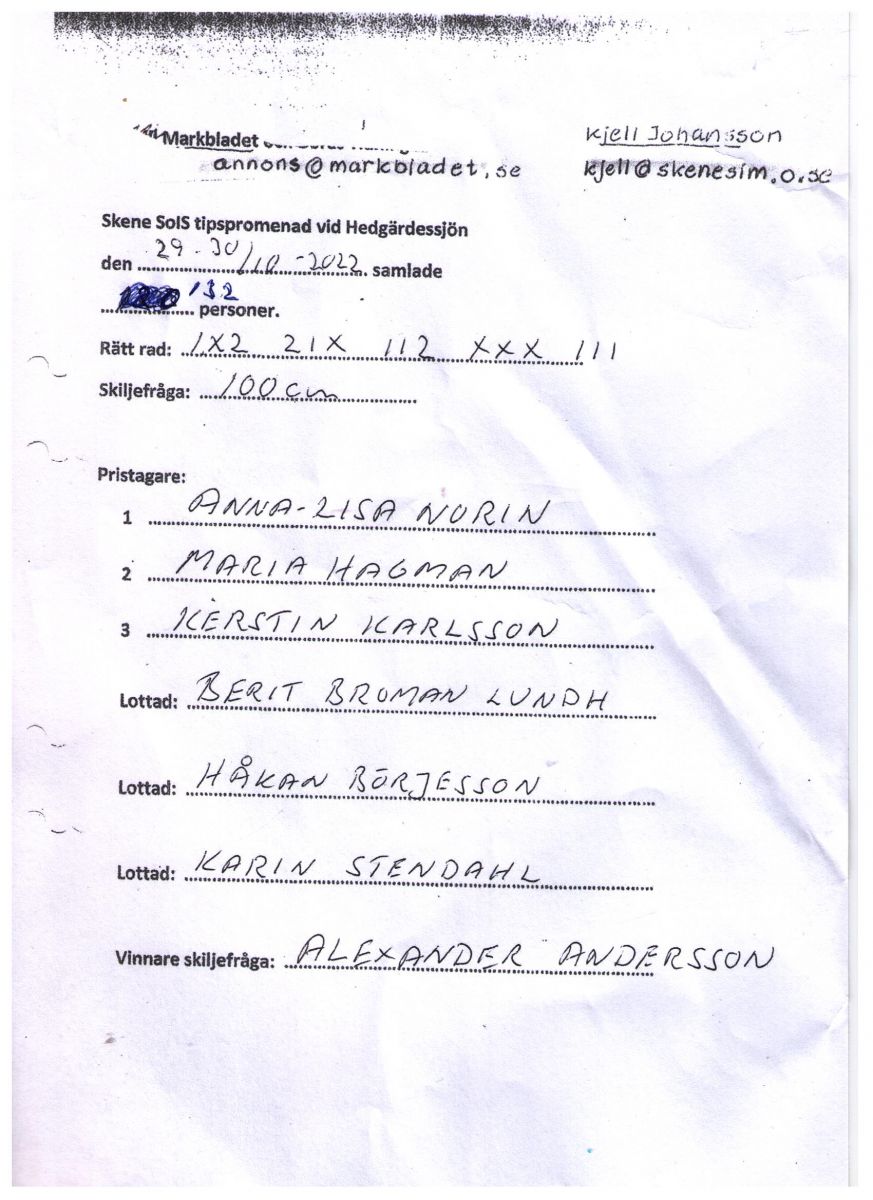 Markbladet
annons@markbladet.se
Kjell Johansson
kjell@skenesim.o.se
Skene SoIS tipspromenad vid Hedgärdessjön
den 29-30/10-2022 samlade
132 personer.
Rätt rad: 1X2 21X 112 XXX 111
Skiljefråga: 100 cm
Pristagare:
1 ANNA-LISA NORIN
2 MARIA HAGMAN
3 KERSTIN KARLSSON
Lottad: BERIT BROMAN LUNDH
Lottad: HÅKAN BÖRJESSON
Lottad: KARIN STENDAHL
Vinnare skiljefråga: ALEXANDER ANDERSSON